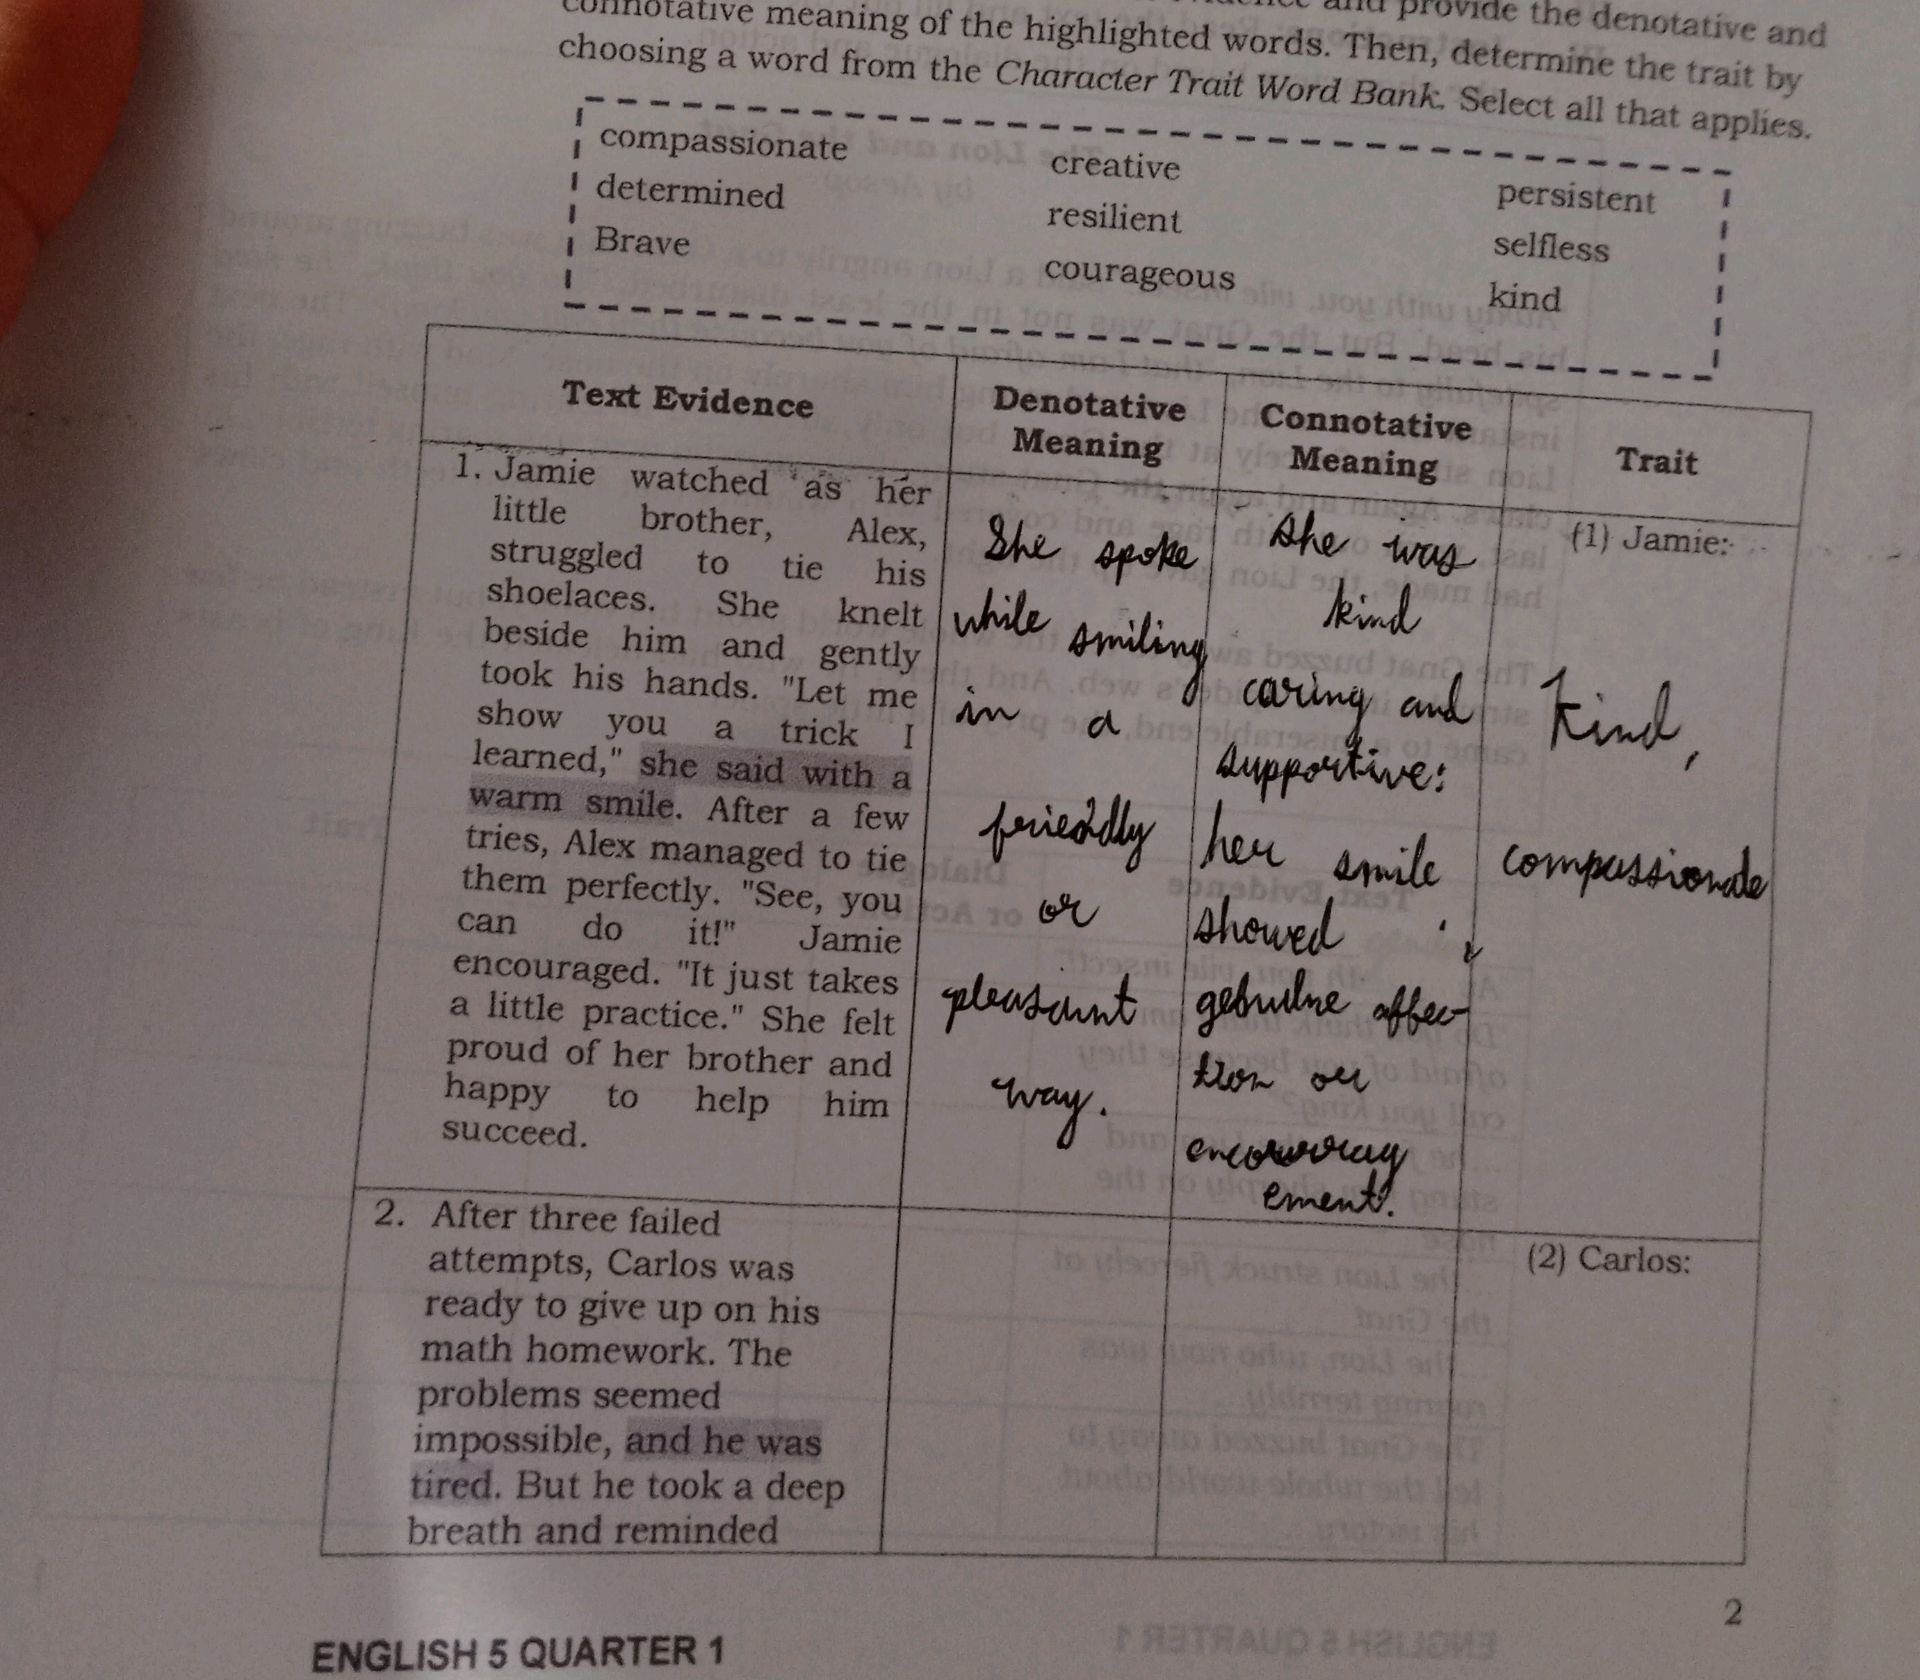 and provide the denotative and
connotative meaning of the highlighted words. Then, determine the trait by
choosing a word from the Character Trait Word Bank. Select all that applies.
compassionate creative persistent
determined resilient selfless
Brave courageous kind
Text Evidence
Denotative
Meaning
Connotative
Meaning
Trait
1. Jamie watched as her
little brother, Alex,
struggled to tie his
shoelaces. She knelt
beside him and gently
took his hands. "Let me
show you a trick I
learned," she said with a
warm smile. After a few
tries, Alex managed to tie
them perfectly. "See, you
can do it!" Jamie
encouraged. "It just takes
a little practice." She felt
proud of her brother and
happy to help him
succeed.
She spoke
while smiling
in a
friendly
or
pleasant
way.
She was
kind
caring and
supportive:
her smile
showed
affec-
tion or
ement.
(1) Jamie:
Kind,
compassionate
2. After three failed
attempts, Carlos was
ready to give up on his
math homework. The
problems seemed
impossible, and he was
tired. But he took a deep
breath and reminded
(2) Carlos:
2
ENGLISH 5 QUARTER 1